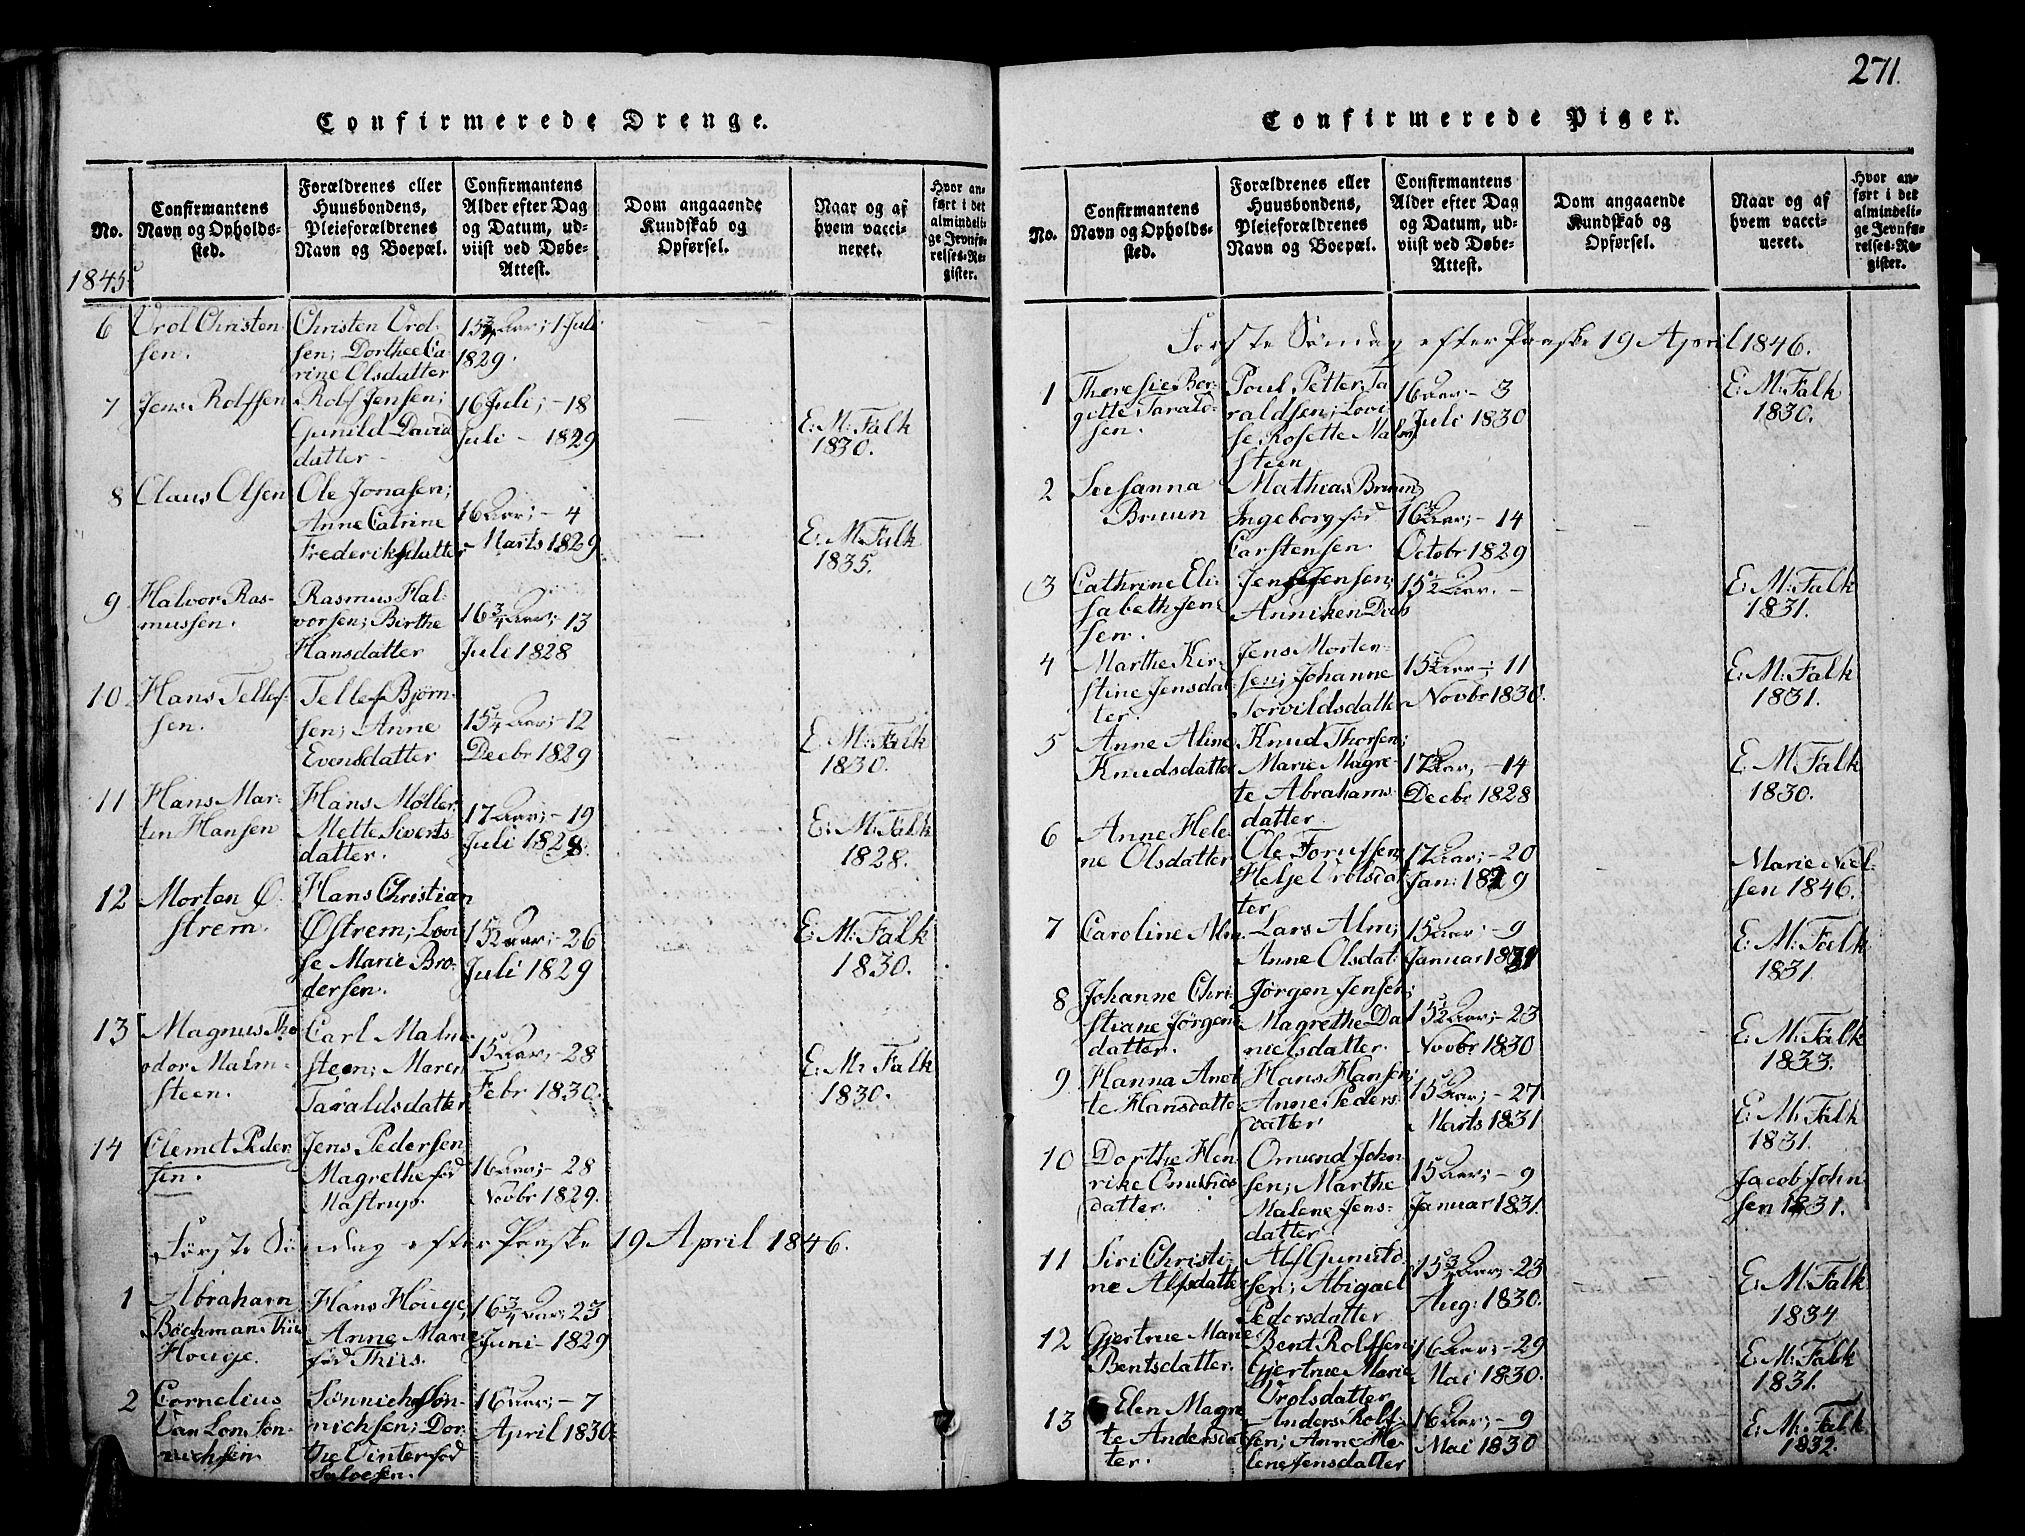 Confirmerede Drenge.
No.
Confirmantens
Navn og Opholds-
sted.
Forældrenes eller
Huusbondens,
Pleieforældrenes
Navn og Boepæl.
Confirmantens
Alder efter Dag
og Datum, ud-
viist ved Døbe-
Attest.
Dom angaaende
Kundskab og
Opførsel.
Naar og af
hvem vacci-
neret.
Hvor an-
ført i det
almindeli-
ge Jevnfø-
relses-Re-
gister.
1845
6
Vrol Christen-
sen.
Christen Vrol-
sen; Dorthee Ca-
rine Olsdatter
15 3/4 Aar; 1 Juli
1829.
7
Jens Rolfsen
Rolf Jensen;
Gunild David
datter
16 Juli; - 18
Juli - 1829
E: M: Falk
1830.
8
Claus Olsen
Ole Jonasen;
Anne Catrine
Frederiksdatter
16 Aar; - 4
Marts 1829.
E: M: Falk
1835.
9
Halvor Ras-
mussen.
Rasmus Hal-
vorsen; Birthe
Hansdatter
16 3/4 Aar; 13
Juli 1828
10
Hans Tellef-
sen.
Tellef Bjørn-
sen; Anne
Evensdatter
15 1/4 Aar; - 12
Decbr 1829
E: M: Falk
1830.
11
Hans Mar-
tin Hansen
Hans Møller
Mette Siverts-
datter.
17 Aar; - 19
Juli 1828.
E: M: Falk
1828.
12
Morten Ø-
strem.
Hans Christian
Østrem; Lovi-
se Marie Bro-
dersen.
15 1/2 Aar; - 26
Juli 1829
E: M: Falk
1830.
13
Magnus The-
odor Malm-
steen.
Carl Malm-
steen; Maren
Taraldsdatter
15 Aar; - 28
Febr 1830.
E: M: Falk
1830.
14
Clemet Peder-
sen.
Jens Pedersen
Magrethe fød
Mastrup.
16 Aar; - 28
Novbr 1829.
Første Søndag efter Paaske 19 April 1846.
1
Abraham
Bochman Thiis
Houge.
Hans Houge,
Anne Marie
fød Thiis.
16 3/4 Aar; 23
Juni - 1829
2
Cornelius
Van Lon Søn-
nichsen
Sønnich Søn-
nichsen; Dor-
the Vinter fød
Salvesen.
16 Aar; - 7
April 1830.
271.
Confirmerede Piger.
No.
Confirmantens
Navn og Opholds-
sted.
Forældrenes eller
Huusbondens,
Pleieforældrenes
Navn og Boepæl.
Confirmantens
Alder efter Dag
og Datum, ud-
viist ved Døbe-
Attest.
Dom angaaende
Kundskab og
Opførsel.
Naar og af
hvem vacci-
neret.
Hvor an-
ført i det
almindeli-
ge Jevnfø-
relses-Re-
gister.
Første Søndag efter Paaske 19 April 1846.
1
Theresie Bor-
gitte Tarald-
sen.
Poul Petter Ta-
raldsen; Lovi-
se Rosette Malm
steen
16 Aar - 3
Juli 1830
E: M: Falk
1830.
2
Susanna
Bruun
Mathias Bruun
Ingeborg fød
Carstensen.
16 Aar; - 14
Octobr 1829
3
Cathrine Eli-
sabeth Jen-
sen.
Jens Jensen;
Anniken
15 1/2 Aar. -
E: M: Falk
1831.
4
Marthe Kir-
stine Jensdat-
ter.
Jens Morten-
sen; Johanne
Torvildsdatter
15 Aar; 11
Novbr 1830.
E: M: Falk
1831.
5
Anne Aline
Knudsdatter
Knud Thorsen;
Marie Magre-
te Abrahams-
datter.
17 Aar; - 14
Decbr 1828
E: M: Falk
1830.
6
Anne Hele-
ne Olsdatter
Ole Torussen
Helje Vrolsdat-
ter
17 Aar; - 20
Jan: 1829
Marie Niel-
sen 1846.
7
Caroline Alm.
Lars Alm;
Anne Olsdat:
15 Aar; - 9
Januar 1831
E: M: Falk
1831.
8
Johanne Chri-
stiane Jørgens
datter.
Jørgen Jensen;
Magrethe Da-
nielsdatter.
15 1/2 Aar; - 23
Novbr 1830
E: M: Falk
1833.
9
Hanna Anet-
te Hansdatter
Hans Hansen;
Anne Peders-
datter
15 Aar; - 27
Marts 1831
E: M: Falk
1831.
10
Dorthe Hen-
rike Omunds
datter.
Omund John-
sen; Marthe
Malene Jens-
datter.
15 Aar; - 9
Januar 1831.
Jacob John-
sen 1831.
11
Siri Christi-
ne Alfsdatter
Alf Gunild-
sen; Abigael
Pedersdatter
15 3/4 Aar; - 23
Aug: 1830.
E: M: Falk
1834
12
Gjertrue Marie
Bentsdatter.
Bent Rolfsen;
Gjertrue Marie
Vrolsdatter
16 Aar; - 29
Mai 1830.
E: M: Falk
1831.
13
Elen Magre-
te Andersdat-
ter.
Anders Rolf-
sen; Anne He-
lene Jensdatter
16 Aar; - 9
Mai 1830
E: M: Falk
1832.